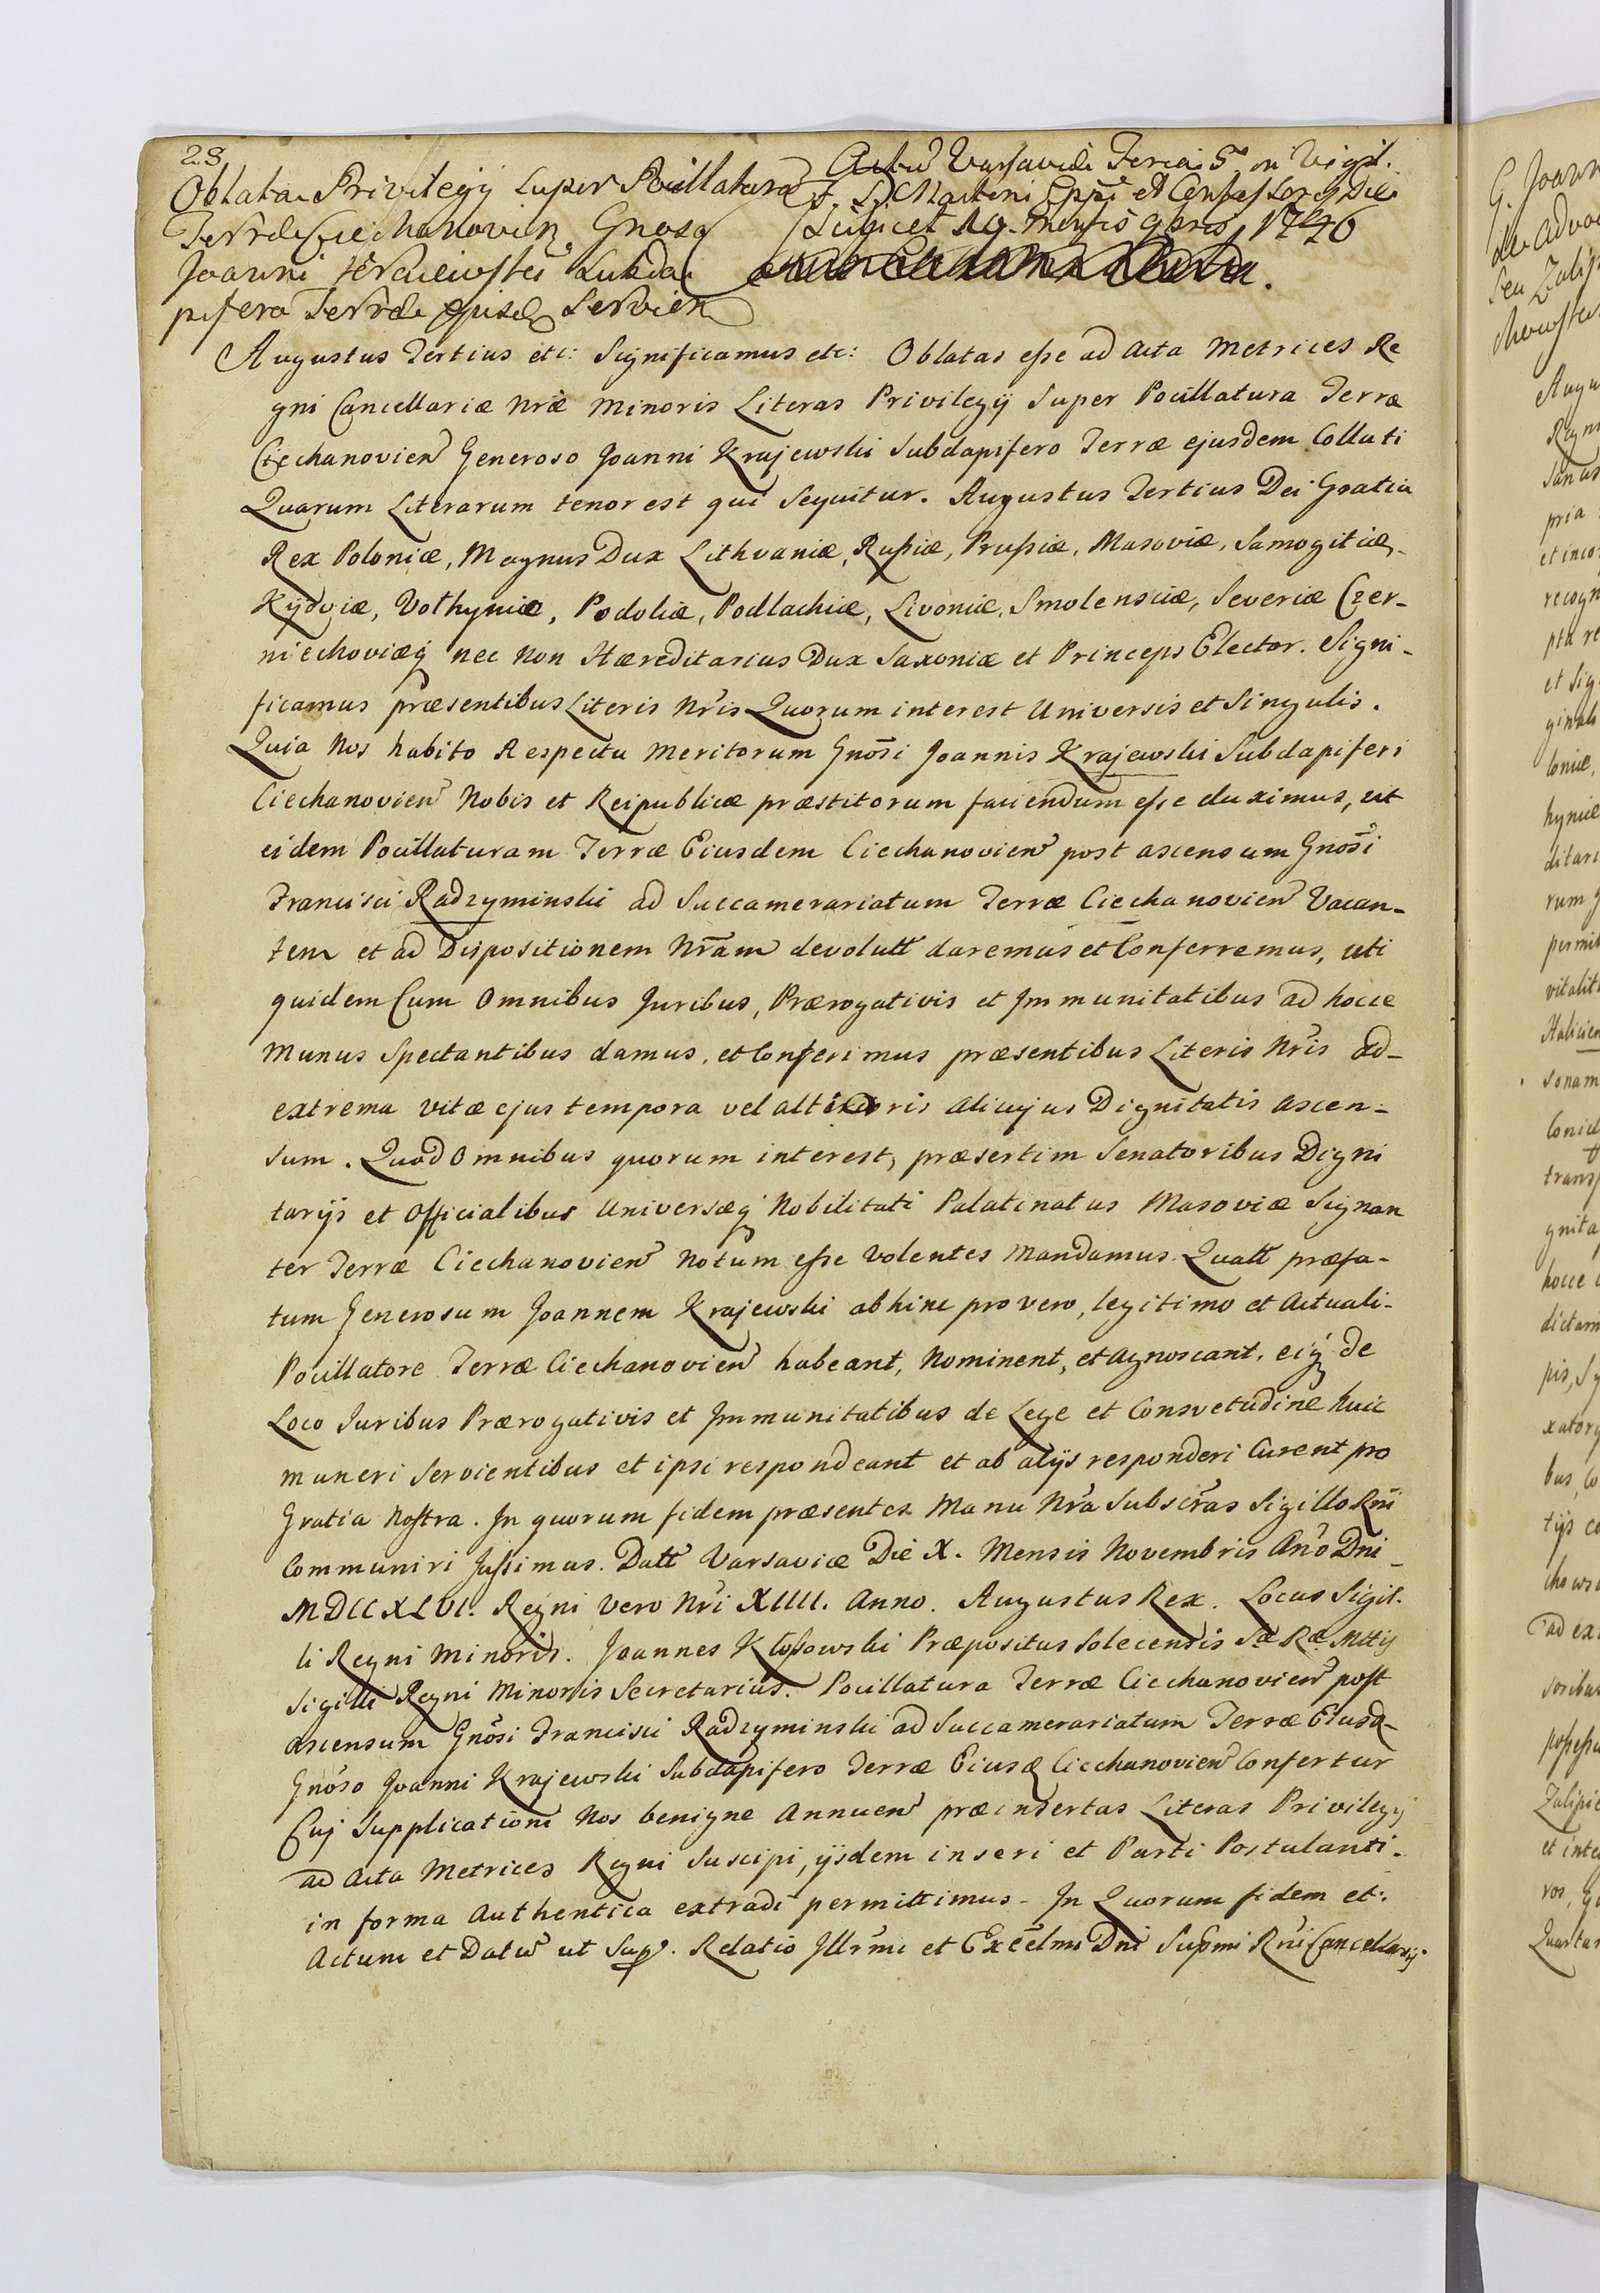 28
Oblata Privilegij Super Pocillatura
Terræ Ciechanovien Gnoso
Joanni Krajewski Subda
pifero Terræ ejusd Servien
Actu Varsaviæ Feria 5ta in Vigil.
S. S. Martini Eppi et Confessoris Die
Scilicet 10 mensis 9bris 1746
Augustus Tertius etc: Significamus etc: Oblatas esse ad Acta Metrices Re
gni Cancellariæ Nræ Minoris Literas Privilegij Super Pocillatura Terræ
Ciechanovien Generoso Joanni Krajewski Subdapifero Terræ ejusdem Collati
Quarum Literarum tenor est qui Sequitur. Augustus Tertius Dei Gratia
Rex Poloniæ, Magnus Dux Lithvaniæ, Rußiæ, Prußiæ, Masoviæ, Samogitiæ,
Kijoviæ, Volhyniæ, Podoliæ, Podlachiæ, Livoniæ, Smolensciæ, Severiæ Czer-
niechoviæq nec non Hæreditarius Dux Saxoniæ et Princeps Elector. Signi-
ficamus præsentibus Literis Nris Quorum interest Universis et Singulis.
Quia Nos habito Respectu Meritorum Gnosi Joannis Krajewski Subdapiferi
Ciechanovien Nobis et Reipublicæ præstitorum faciendum esse duximus, ut
eidem Pocillaturam Terræ Eiusdem Ciechanovien post ascensum Gnosi
Francisci Radzyminski ad Succamerariatum Terræ Ciechanovien Vacan-
tem et ad Dispositionem Nram devolutt daremus et Conferremus, uti
quidem Cum Omnibus Juribus, Prærogativis et Immunitatibus ad hocce
Munus Spectantibus damus, et Conferimus præsentibus Literis Nris ad-
extrema vitæ ejus tempora vel altioris alicujus Dignitatis ascen-
sum. Quod Omnibus quorum interest, præsertim Senatoribus Digni
tarijs et Officialibus Universæq Nobilitati Palatinatus Masoviæ Signan
ter Terræ Ciechanovien Notum esse Volentes Mandamus Quatt præfa-
tum Generosum Joannem Krajewski abhinc pro vero, legitimo et Actuali-
Pocillatore Terræ Ciechanovien habeant, Nominent, et agnoscant, eiq de
Loco Juribus Prærogativis et Immunitatibus de Lege et Consvetudine huic
muneri Servientibus et ipsi respondeant et ab alijs responderi Curent pro
Gratia Nostra. In quorum fidem præsentes Manu Nra Subscras Sigillo Rni
Communiri Jussimus. Datt Varsaviæ Die X. Mensis Novembris Ano Dni
MDCCXLVI. Regni Vero Nri XIIII. Anno. Augustus Rex. Locus Sigil-
li Regni Minoris. Joannes Kloßowski Præpositus Solecensis Sæ Ræ Mttis
Sigilli Regni Minoris Secretarius. Pocillatura Terræ Ciechanovien post
ascensum Gnosi Francisci Radzyminski ad Succamerariatum Terræ Eiusd
Gnoso Joanni Krajewski Subdapifero Terræ Eiusd Ciechanovien Confertur
Cuj Supplicationi Nos benigne Annuen præinsertas Literas Privilegij
ad Acta Metrices Regni Suscipi, ijsdem inseri et Parti Postulanti-
in forma Authentica extradi permittimus. In Quorum fidem etc.
Actum et Datum ut Sup. Relatio Illrmi et Excelmi Dni Supmi Rni Cancellarij.
G. Joann
Augu
Regni
pria
recogn
et Sig
loniæ,
hyniæ
ditari
rum
permit
vitalit
sonam
trans
gnita
hocce
dictam
ad ex
et inte